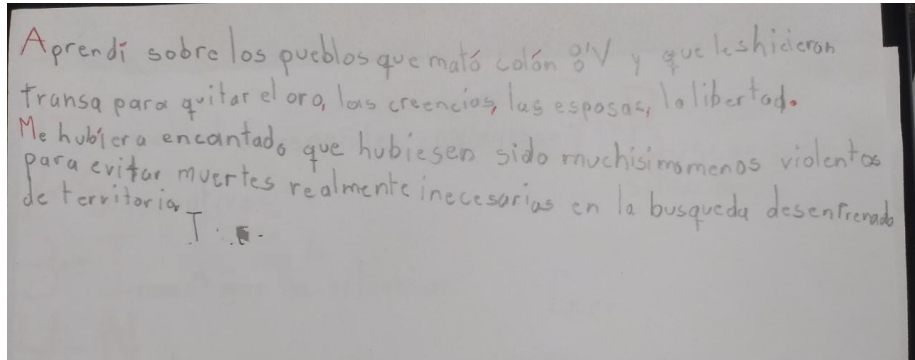 Aprendí sobre los pueblos que mató colón y que les hicieron
transa para quitar el oro, las creencias, las esposas, la libertad.
Me hubiera encantado que hubiesen sido muchisimo menos violentos
para evitar muertes realmente inecesarias en la busqueda desenfrenada
de territorio
T.